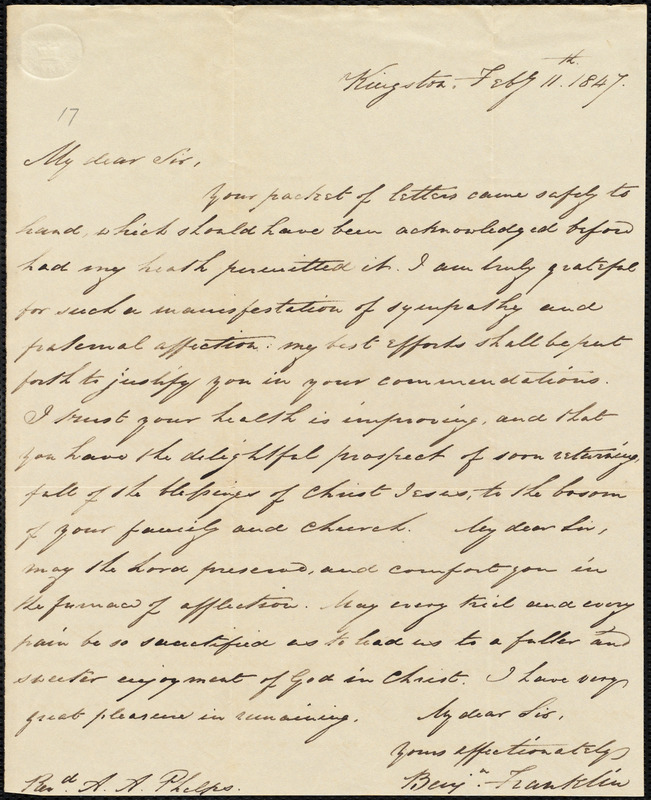 Kingston, Feby 11th. 1847.
17
My dear Sir,
Your packet of letters came safely to
hand, which should have been acknowledged before
had my heath permitted it. I am truly grateful
for such a manisfestation of sympathy and
fraternal affection: my best efforts shall be put
forth to justify you in your commendations.
I trust your health is improving, and that
you have the delightful prospect of soon returning,
full of the blessings of Christ Jesus, to the bosom
of your family and Church. My dear Sir,
may the Lord preserve, and comfort you in
the furnace of affliction. May every trial and every
pain be so sanctified as to lead us to a fuller and
sweeter enjoyment of God in Christ. I have very
great pleasure in remaining,
My dear Sir,
Yours affectionately
Benjn. Franklin
Revd. A. A. Phelps.